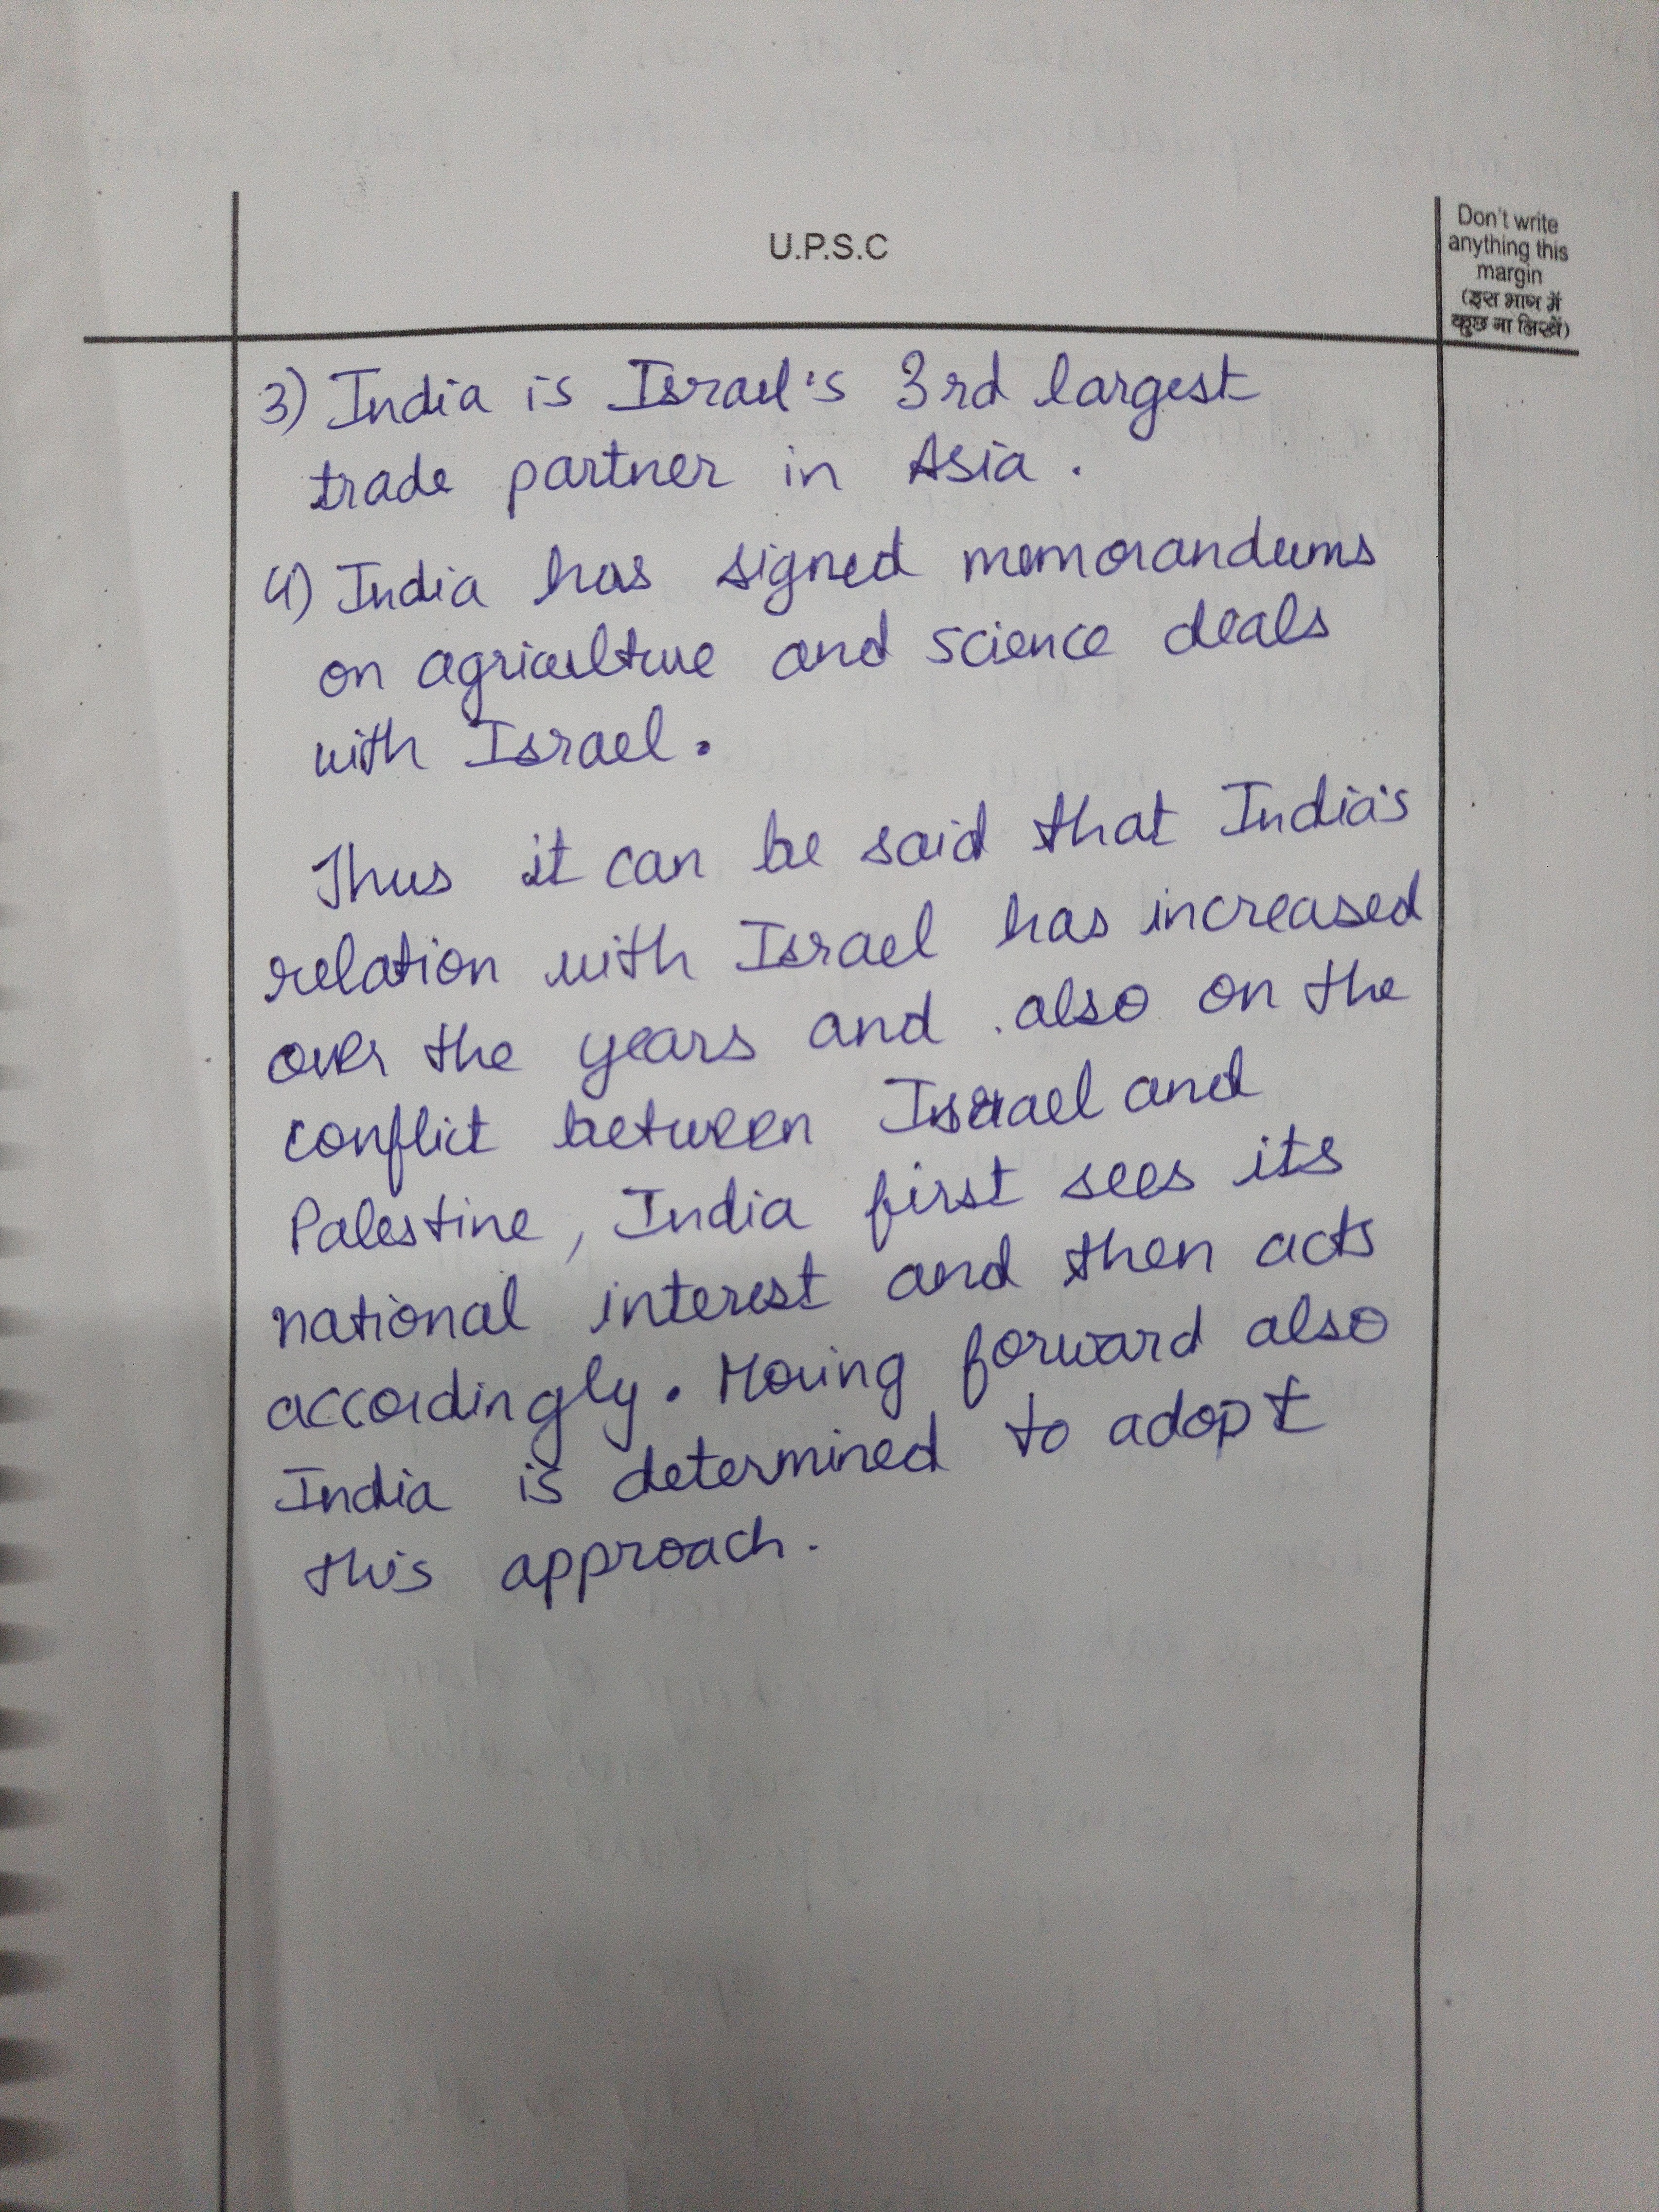 U.P.S.C
Don't write
anything this
margin
(इस भाग में
कुछ ना लिखें)
3) India is Israel's 3rd largest
trade partner in Asia.
4) India has signed memorandums
on agriculture and science deals
with Israel.
Thus it can be said that India's
relation with Israel has increased
over the years and also on the
conflict between Israel and
Palestine, India first sees its
national interest and then acts
accordingly. Moving forward also
India is determined to adopt
this approach.